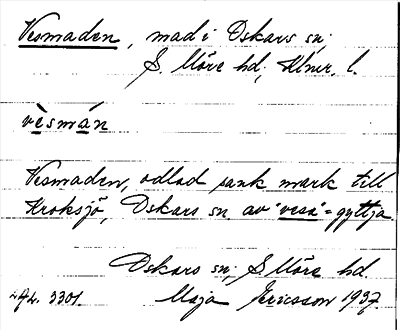 Vesmaden, mad i Oskars sn;
S. Möre hd, Klmr. l.
vèsmán
Vesmaden, odlad sank mark till
Kroksjö, Oskars sn. av "vesa" = gyttja
Oskars sn; S. Möre hd.
Maja Ericsson 1937.
3301.